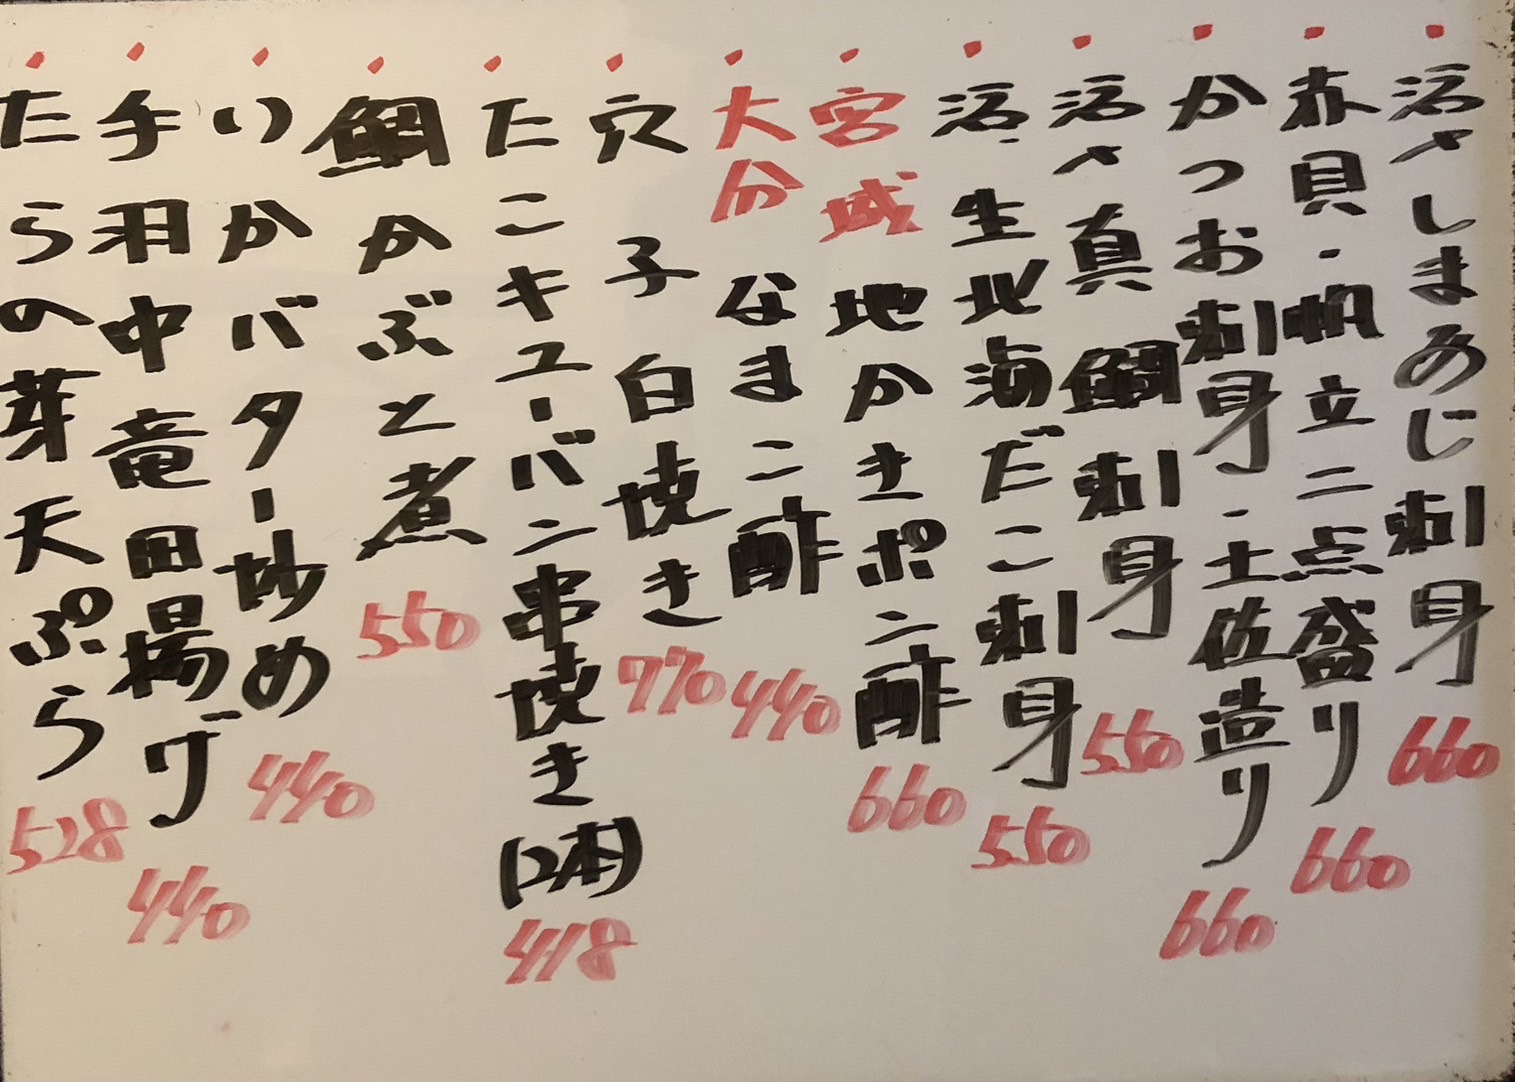 活〆しまあじ刺身 660
赤貝・帆立二点盛り 660
かつお刺身・土佐造り 660
活〆真鯛刺身 550
活・生北海だこ刺身 550
宮城 地かきポン酢 660
大分 なまこ酢 440
穴子白焼き 770
たこキューバン串焼き(2本) 418
鯛かぶと煮 550
いかバター炒め 440
手羽中竜田揚げ 440
たらの芽天ぷら 528